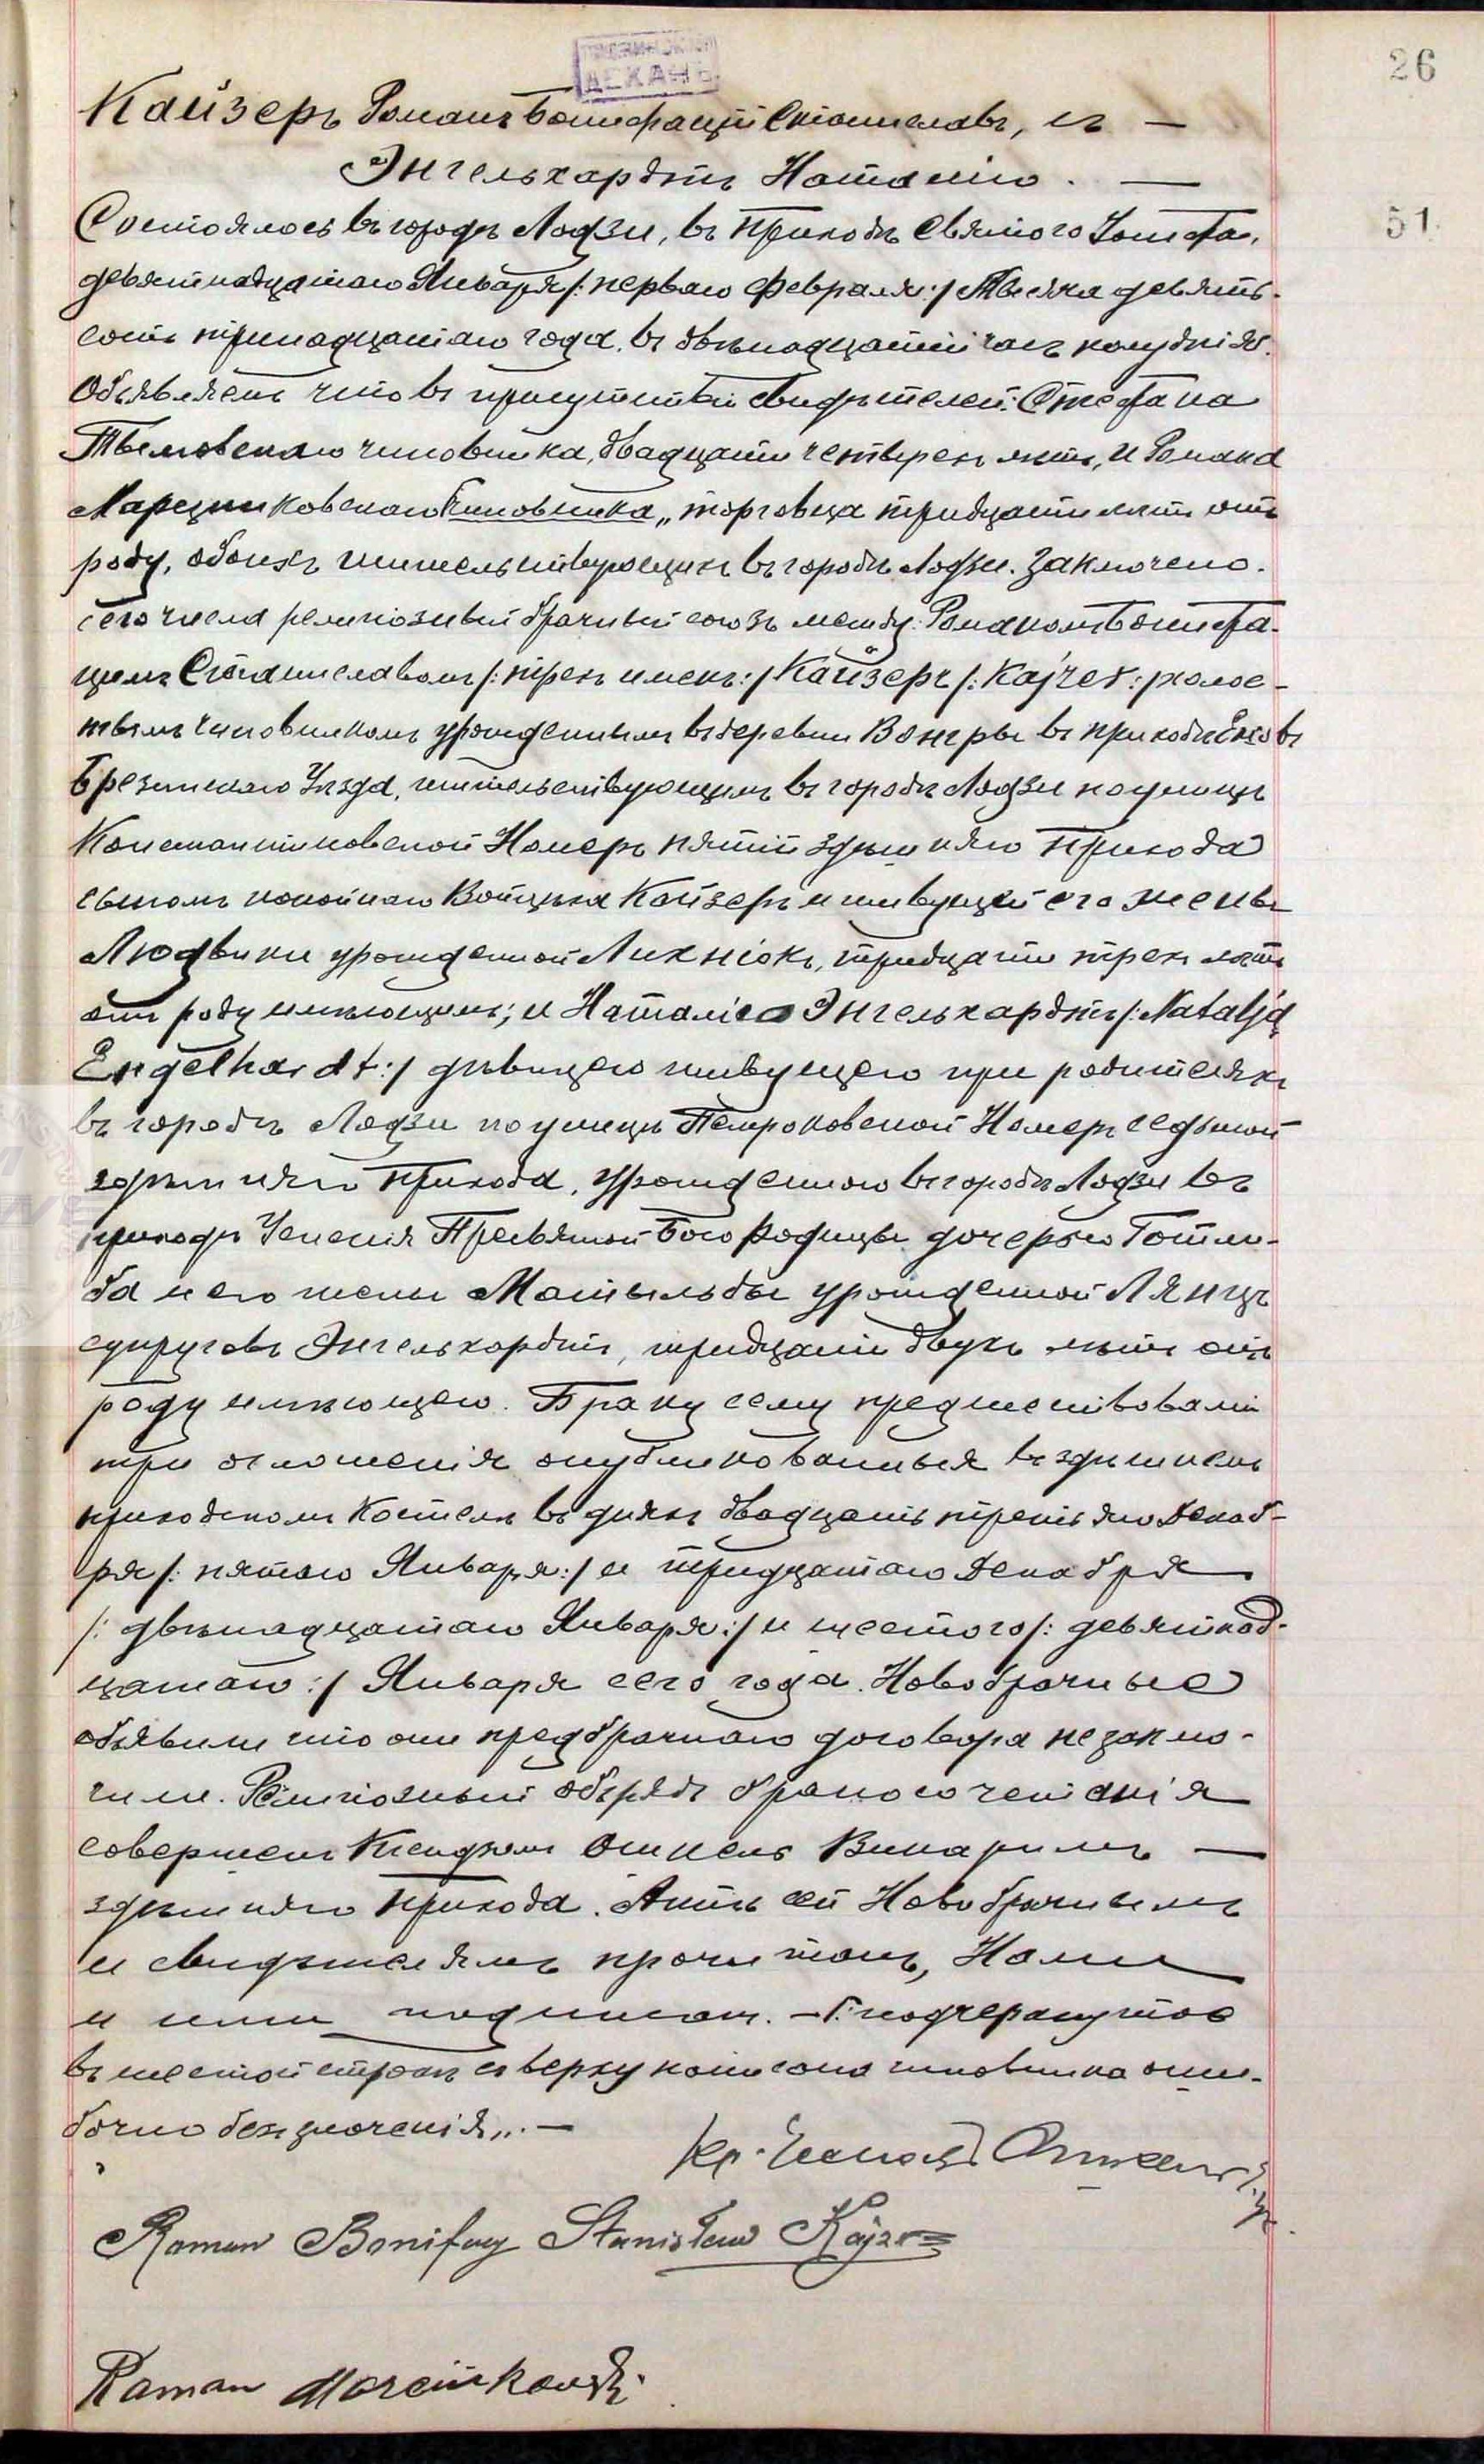 26
ДЕКАНЪ
Кайзеръ Романъ Бонифацій Станиславъ, съ —
Энгельхардтъ Наталію. —
51
Состоялось въ городѣ Лодзи, въ приходѣ Святого Іосифа,
девятнадцатаго Января /:перваго Февраля:/ тысяча девять-
сотъ тринадцатаго года, въ двѣнадцатый часъ полудня.
Объявляемъ что въ присутствіи свидѣтелей: Стефана
чиновника, двадцати четырехъ лѣтъ, и Романа
Марцинковскаго чиновника „ торговца тридцати лѣтъ отъ
роду, обоихъ жительствующихъ въ городѣ Лодзи. Заключено
сего числа религіозный брачный союзъ между: Романомъ Бонифа-
цимъ Станиславомъ /:трехъ именъ:/ Кайзеръ /:Kajzer:/ холос-
тымъ чиновникомъ урожденнымъ въ деревни Венгры въ приходѣ
Брезинскаго Уѣзда, жительствующимъ въ городѣ Лодзи по улицѣ
Константиновской Номеръ пятый здѣшняго прихода
сыномъ покойнаго Войцѣха Кайзеръ и живущей его жены
Людвики урожденной Лихніокъ, тридцати трехъ лѣтъ
отъ роду имѣющимъ; и Наталіею Энгельхардтъ /:Natalją
Engelhardt:/ дѣвицею живущею при родителяхъ
въ городѣ Лодзи по улицѣ Петроковской Номеръ седьмой
здѣшняго прихода, урожденною въ городѣ Лодзи въ
приходѣ Успенія Пресвятой Богородицы дочерью Готли-
ба и его жены Матыльды урожденной Лянцъ
супруговъ Энгельхардтъ, тридцати двухъ лѣтъ отъ
роду имѣющею. Браку сему предшествовали
три оглашенія опубликованныя въ здѣшнемъ
приходскомъ костелѣ въ дняхъ двадцать третьяго Декаб-
ря /:пятаго Января:/ и тридцатаго Декабря
/:двѣнадцатаго Января:/ и шестого /:девятнад-
цатаго:/ Января сего года. Новобрачные
объявили что они предбрачнаго договора не заклю-
чили. Религіозный обрядъ бракосочетанія
совершенъ Ксендзомъ Викаримъ —
здѣшняго прихода. Актъ сей Новобрачнымъ
и свидѣтелямъ прочитанъ, Нами
и ими подписанъ. — подчеркнутое
въ шестой строкѣ съ верху написано чиновника оши-
бочно безъ значенія „. —
Roman Bonifacy Stanisław Kajzer
Roman Marcinkowski